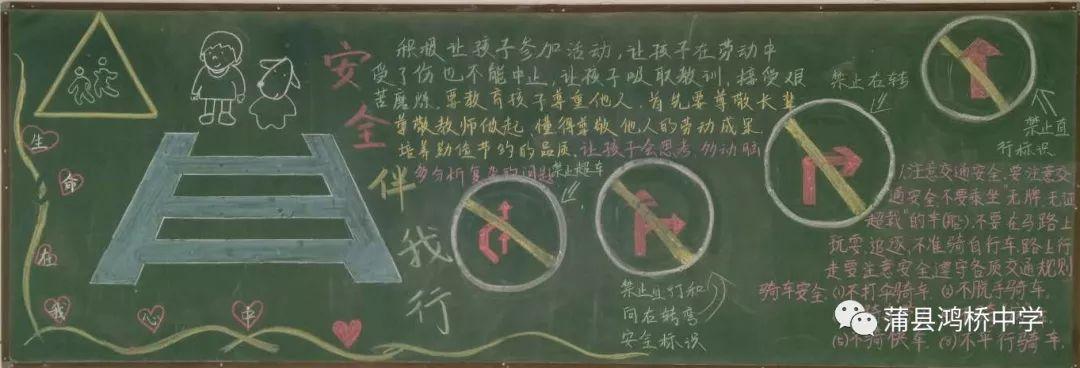 安全伴我行
积极让孩子参加活动,让孩子在劳动中
受了伤也不能中止,让孩子吸取教训,接受艰
苦磨炼。要教育孩子尊重他人,首先要尊敬长辈
尊敬教师做起,懂得尊敬他人的劳动成果,
培养勤俭节约的品质,让孩子会思考,多动脑
多分析复杂的问题
禁止超车
生命在我心中
禁止直行和
向右转弯
安全标识
禁止右转
禁止直
行标识
1.注意交通安全,要注意交
通安全不要乘坐“无牌、无证
超载”的车(船),不要在马路上
玩耍、追逐,不准骑自行车路上行
走要注意安全遵守各项交通规则
骑车安全 (1)不打伞骑车 (2)不脱手骑车,
(5)不骑快车,
不平行骑车.
蒲县鸿桥中学